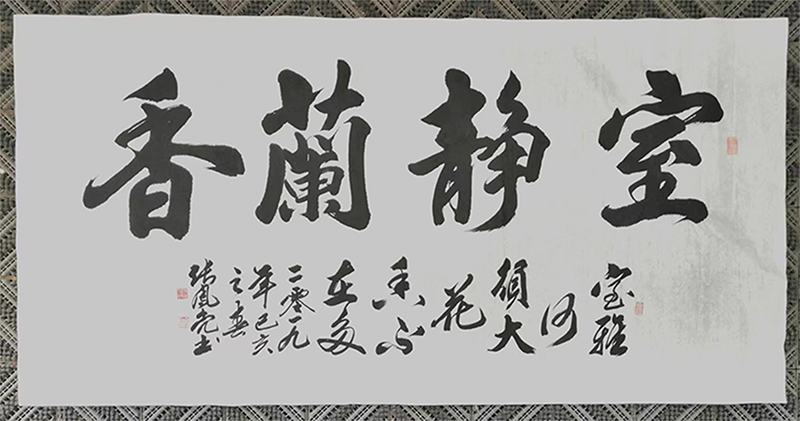 室静蘭香
室雅
何
須大
花
香不
在多
二零一九
年己亥
之春
张凤亮书